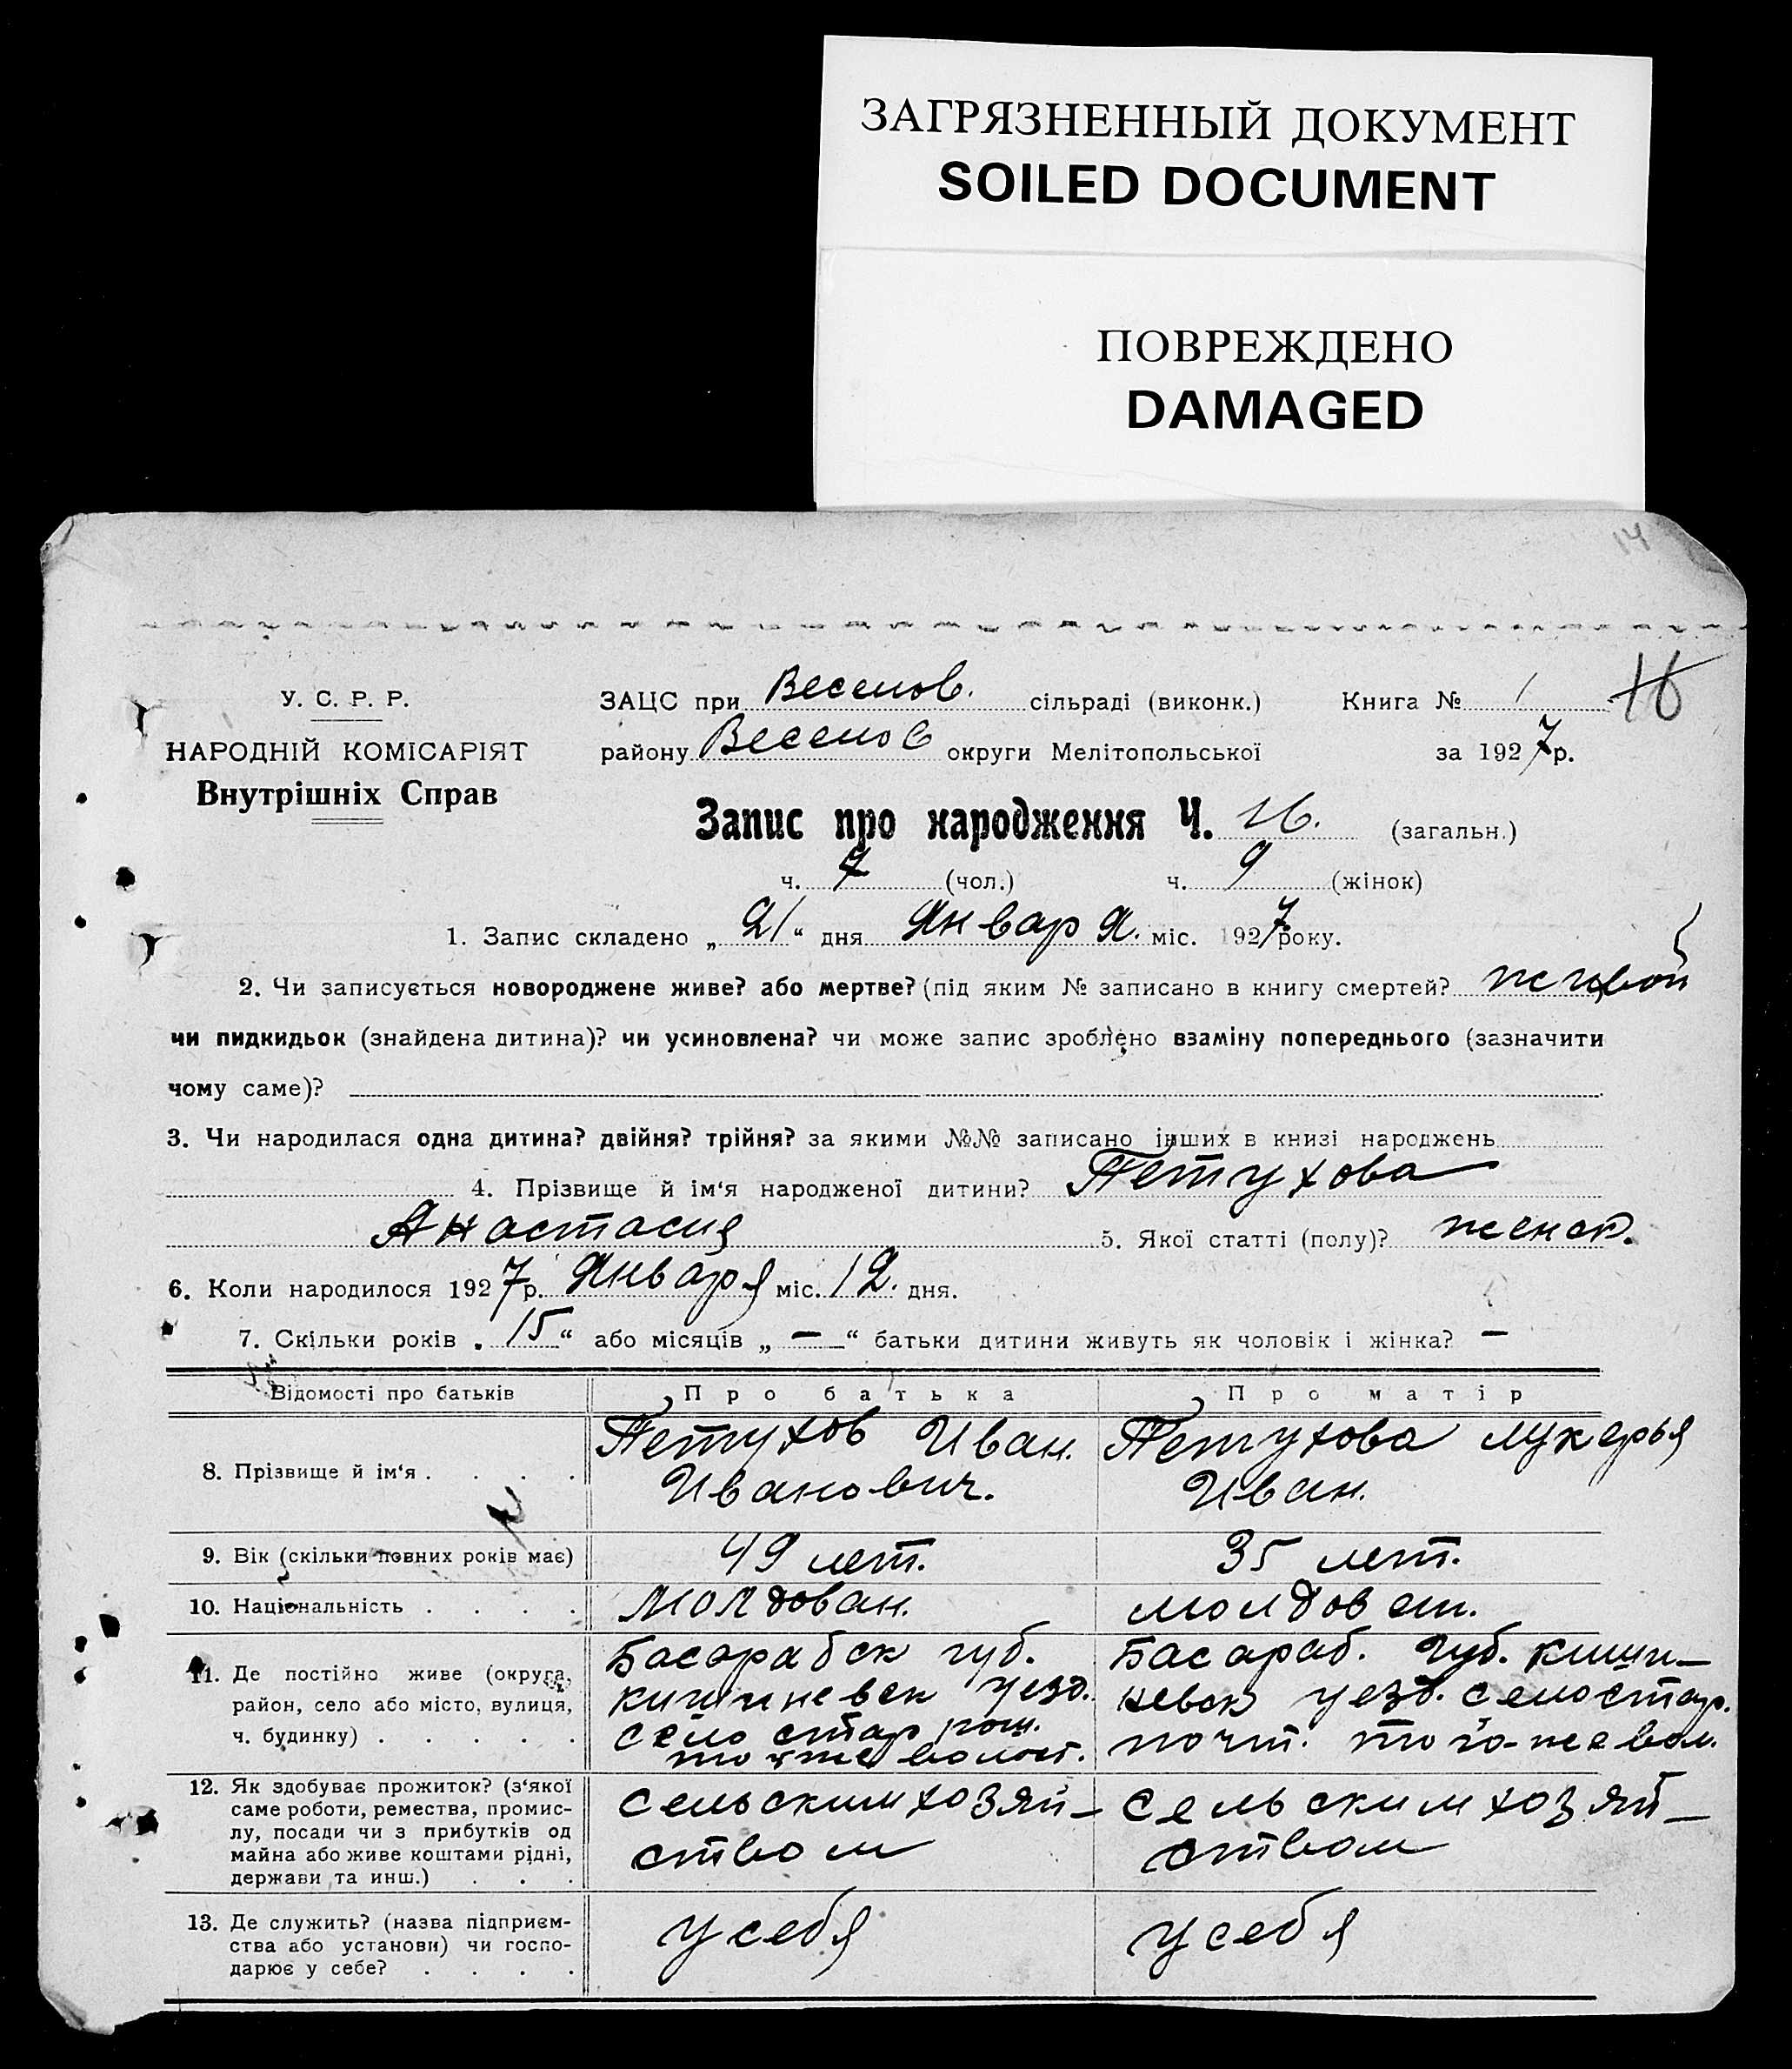 ЗАГРЯЗНЕННЫЙ ДОКУМЕНТ
SOILED DOCUMENT
ПОВРЕЖДЕНО
DAMAGED
14
У. С. Р. Р.
НАРОДНІЙ КОМІСАРІЯТ
Внутрішніх Справ
ЗАЦС при Веселов. сільраді (виконк.) Книга № 1 16
району Веселов округи Мелітопольської за 1927р.
Запис про народження Ч. 16. (загальн.)
ч. 7 (чол.) ч. 9 (жінок)
1. Запис складено „21“ дня Январ я. міс. 1927року.
2. Чи записується новороджене живе? або мертве? (під яким № записано в книгу смертей? живой
чи пидкидьок (знайдена дитина)? чи усиновлена? чи може запис зроблено взаміну попереднього (зазначити
чому саме)?
3. Чи народилася одна дитина? двійня? трійня? за якими №№ записано інших в книзі народжень
4. Прізвище й ім‘я народженої дитини? Петухова
Анастасия 5. Якої статті (полу)? женск.
6. Коли народилося 1927р. Января міс. 12. дня.
7. Скільки років „15“ або місяців „—“ батьки дитини живуть як чоловік і жінка? —
Відомості про батьків Про батька Про матір
8. Прізвище й ім‘я . . . .
Петухов Иван.
Иванович.
Петухова Лукерья
Иван.
9. Вік (скільки повних років має) 49 лет. 35 лет.
10. Національність . . . . Молдован. молдован.
11. Де постійно живе (округа,
район, село або місто, вулиця,
ч. будинку) . . . . .
Басарабск губ.
кишиневск уезд.
село стар
волост.
Басараб. губ. киши-
невск уезд. село стар.
того-же вол.
12. Як здобуває прожиток? (з‘якої
саме роботи, ремества, промис-
лу, посади чи з прибутків од
майна або живе коштами рідні,
держави та инш.) . . .
сельским хозяй-
ством
сельским хозяй-
ством
13. Де служить? (назва підприєм-
ства або установи) чи госпо-
дарює у себе? . . . .
у себя
у себя